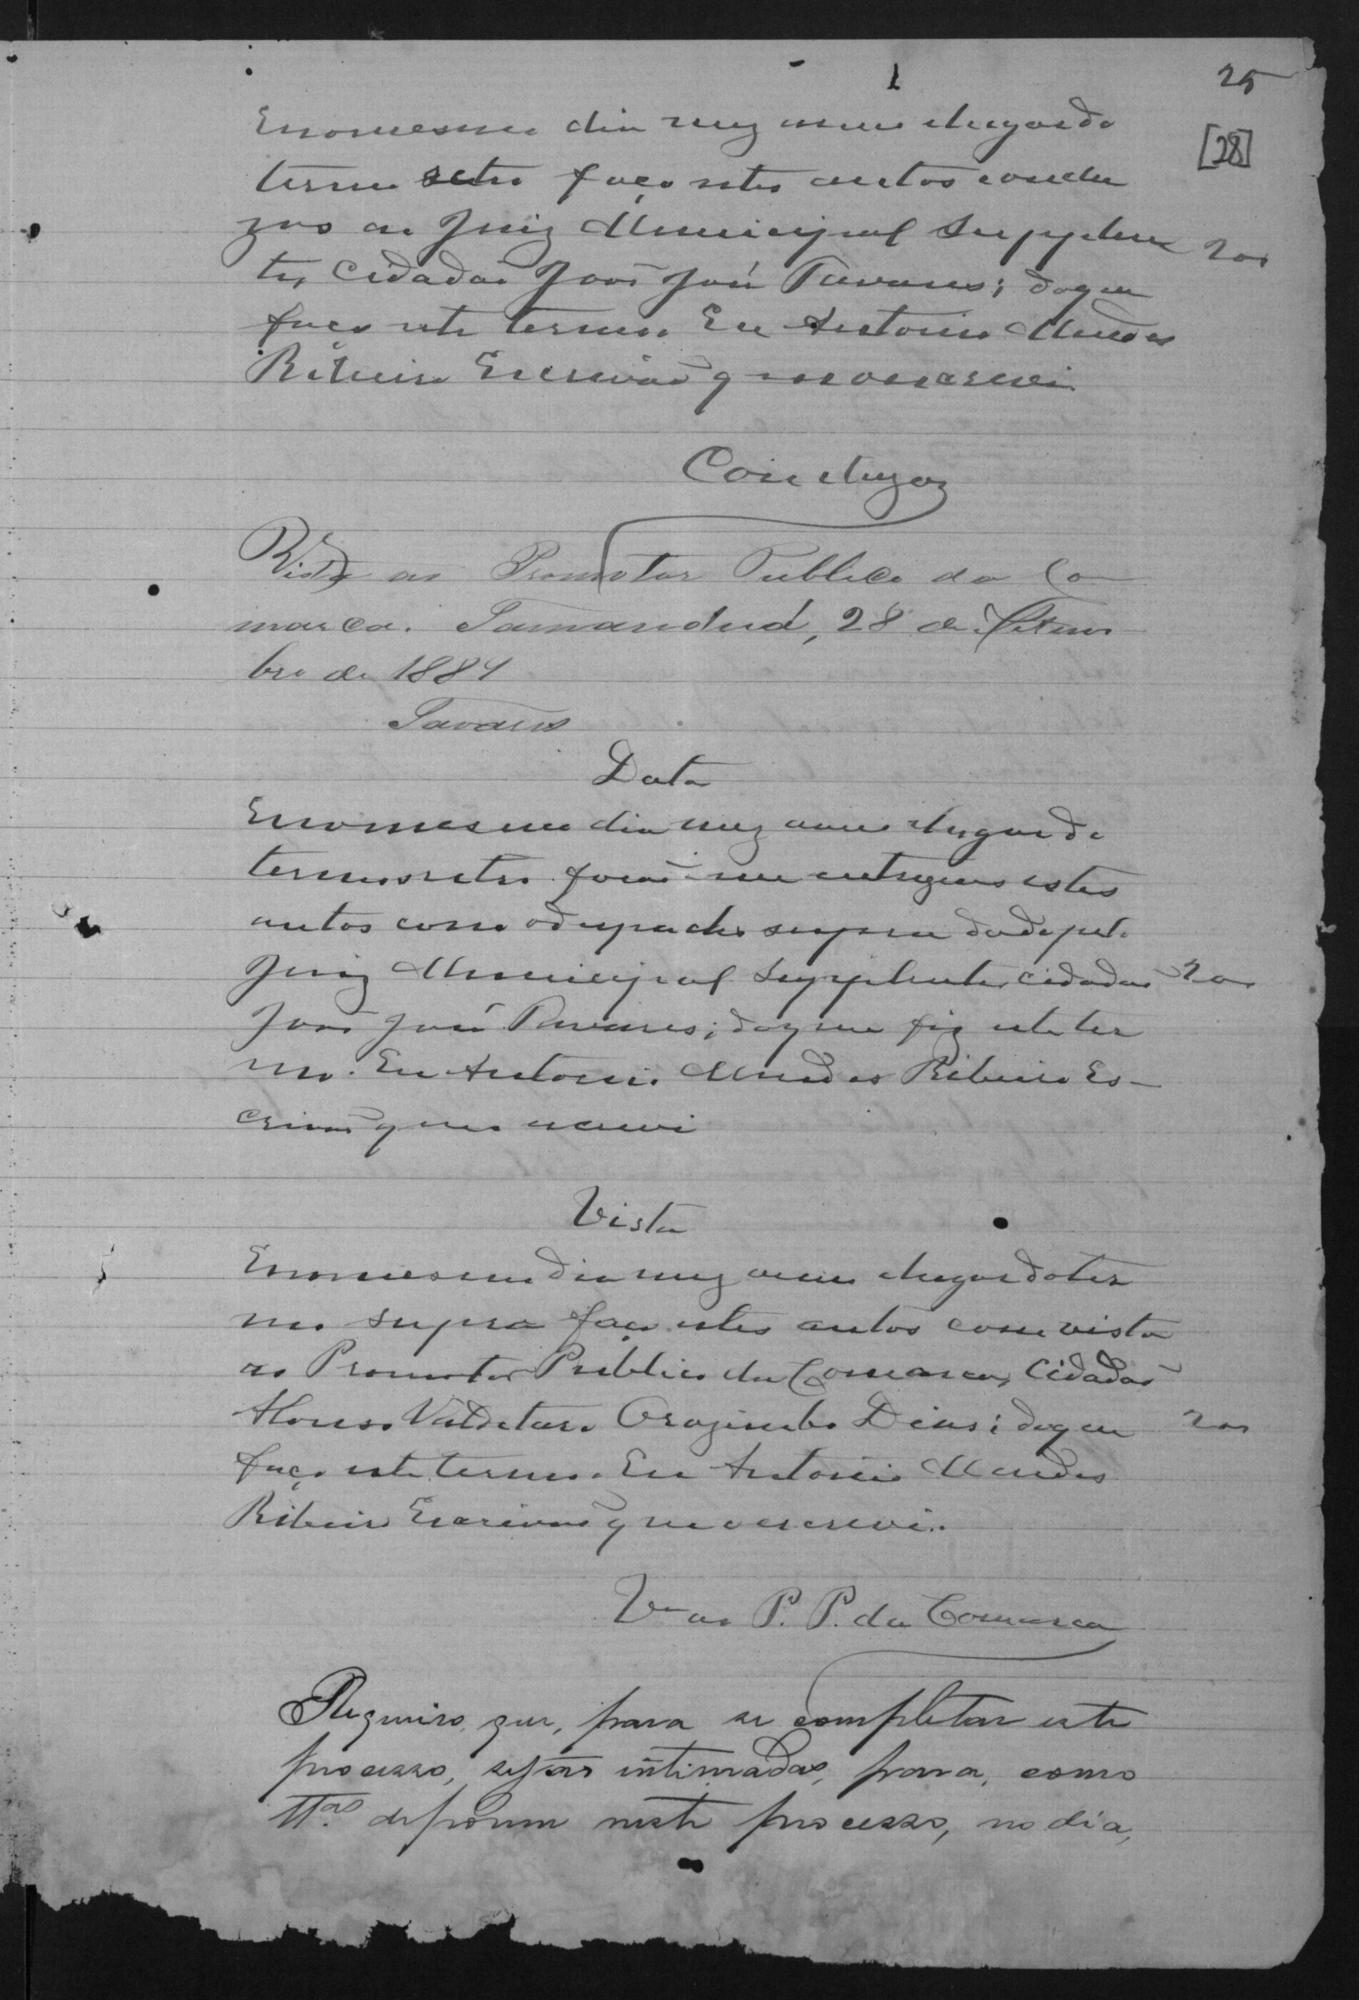 25
[28]
E no mesmo dia mez anno e lugar do
termo retro faço estes autos conclu
zos ao Juiz Municipal Supplen 200
te, Cidadão João José Tavares; do que
faço este termo. Eu Antonio Mendes
Ribeiro Escrivão que o escrevi
Conclusos
Vista ao Promotor Publico da Co
marca. Tamanduá, 28 de Setem
bro de 1884
Tavares
Data
E no mesmo dia mez anno e lugar do
termo retro forão-me entregues estes
autos com o despacho supra
Juiz Municipal Supplente, cidadão 200
João José Tavares; do que fiz este ter
mo. Eu Antonio Mendes Ribeiro Es-
crivão que o escrevi
Vista
E no mesmo dia mez anno e lugar do ter
mo supra faço estes autos com vista
ao Promotor Publico da Comarca, Cidadão
Dias; do que 200
faço este termo. Eu Antonio Mendes
Ribeiro Escrivão que o escrevi.
Vᵃ ao P. P. da Comarca
Requeiro que, para se completar este
processo, sejão intimadas, para, como
ttᵃˢ deporem neste processo, no dia,